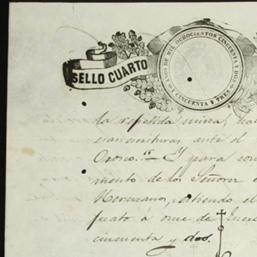 SELLO CUARTO
AÑOS DE MIL OCHOCIENTOS CINCUENTA Y DOS
Y CINCUENTA Y TRES
la repetida mina,
ante el
Orozco. Y para con
mento de los Señores
Hermanos, estiendo el
á once de Enero
cincuenta y dos.